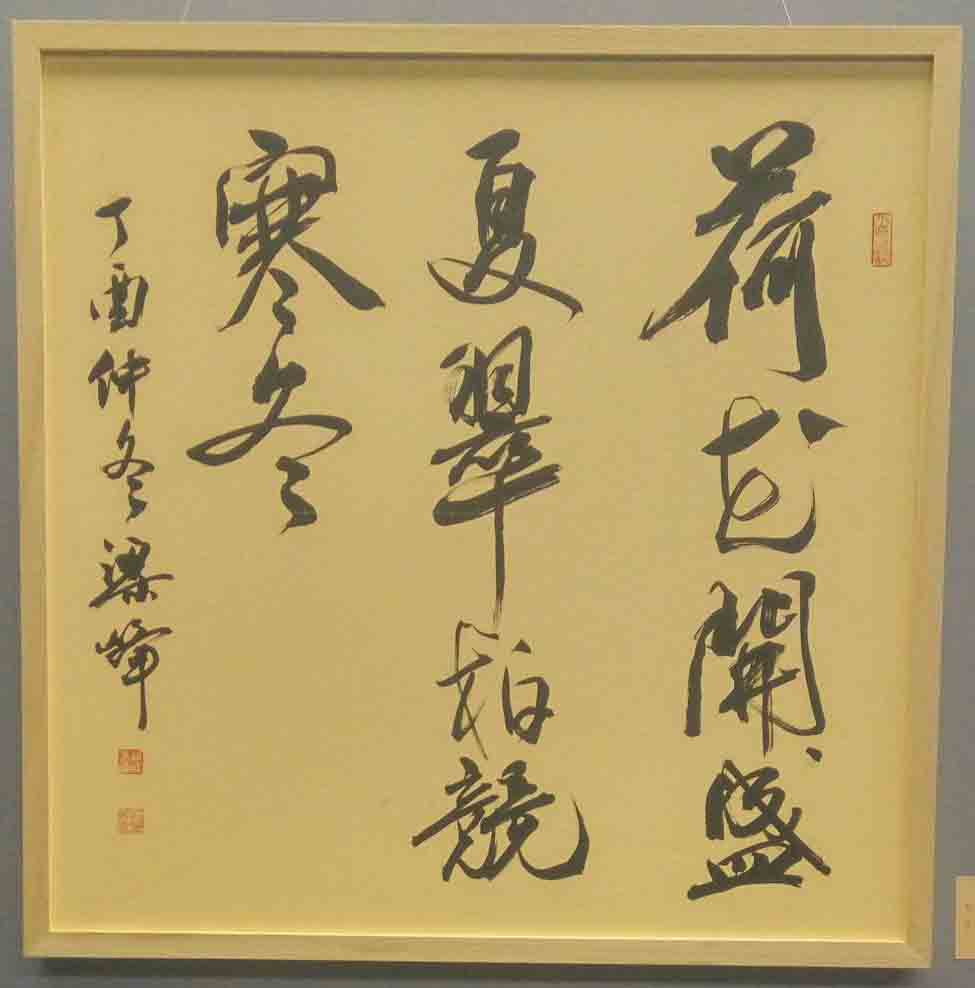 荷花開盛
夏翠柏競
寒冬
丁酉仲冬梁峰